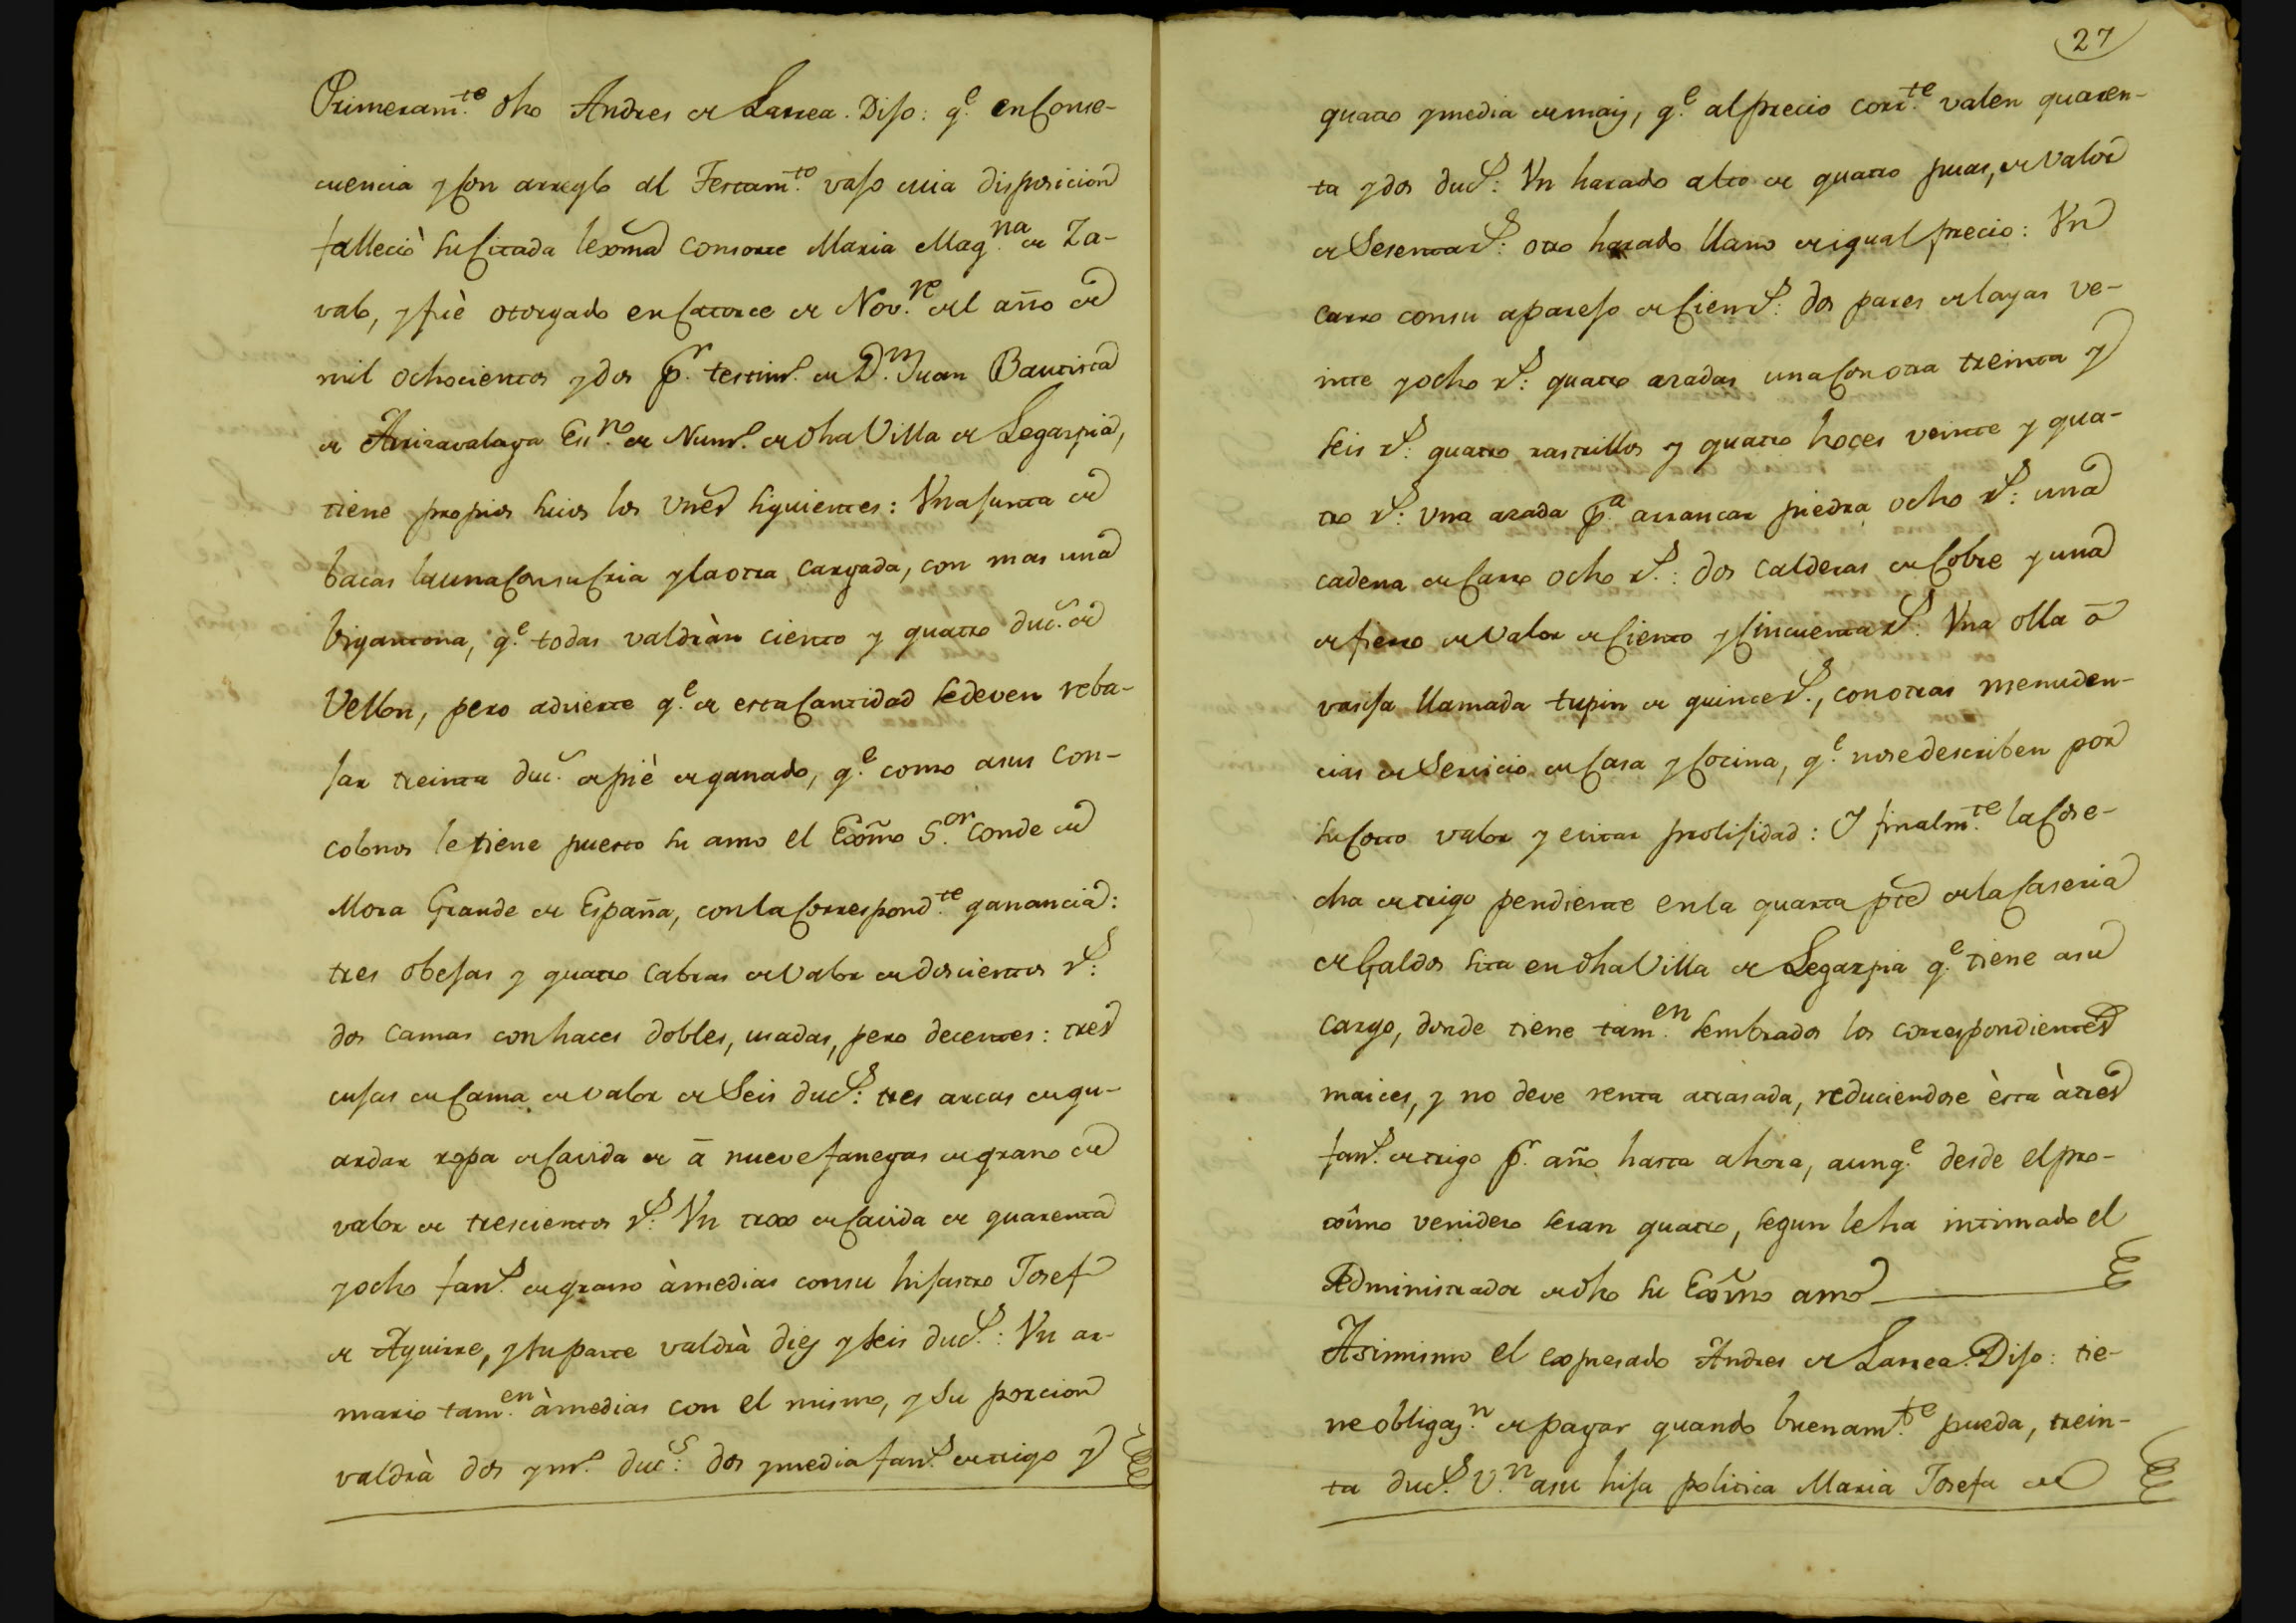 Primeram.te dho Andres de Larrea. Dijo: q.e en Conse-
cuencia y Con arreglo al Testam.to vajo cuia disposicion
falleciò su Citada lexma consorte Maria Mag.na de Za-
valo, y fuè otorgado en Catorce de Nov.re del año de
mil ochocientos y dos p.r testim.o de D.n Juan Bautista
de Arizavalaga Es.no de Num.o de dha Villa de Legazpia,
tiene propios suios los vnes siguientes: Vna junta de
bacas la una Con su Cria y la otra cargada, con mas una
bigantona, q.e todas valdràn ciento y quatro duc.s de
Vellon, pero advierte q.e de esta Cantidad se deven reba-
jar treinta duc.s de piè de ganado, q.e como a sus Con-
colonos le tiene puesto su amo el Exm̃o S.or Conde de
Mora Grande de España, con la Correspond.te ganancia:
tres obejas y quatro Cabras de Valor de doscientos r.s:
dos Camas con haces dobles, usadas, pero decentes: tres
cujas de Cama de valor de Seis duc.s: tres arcas de gu-
ardar ropa de Cavida de ā nueve fanegas de grano de
valor de trescientos r.s: Vn troxo de Cavida de quarenta
y ocho fan.s de grano à medias con su hijastro Josef
de Aguirre, y su parte valdrà diez y seis duc.s: Vn ar-
mario tam.en à medias con el mismo, y su porcion
valdrà dos y m.o duc.s: dos y media fan.s de trigo y
27
quatro y media de maiz, q.e al precio corr.te valen quaren-
ta y dos duc.s: Vn harado alto de quatro puas, de valor
de Sesenta r.s: otro harado llano de igual precio: Vn
carro con su aparejo de Cien r.s: dos pares de layas ve-
inte y ocho r.s: quatro azadas una Con otra treinta y
seis r.s: quatro rastrillos y quatro hoces veinte y qua-
tro r.s: vna azada p.a arrancar piedra ocho r.s: una
cadena de Carro ocho r.s: dos Calderas de Cobre y una
de fierro de Valor de Ciento y Cincuenta r.s: Vna olla ō
vasija llamada tupin de quince r.s, con otras menuden-
cias de Servicio de Casa y Cocina, q.e no se describen por
su Corto valor y evitar prolijidad: Y finalm.te la Cose-
cha de trigo pendiente en la quarta pte de la Caseria
de Galdos sita en dha Villa de Legazpia q.e tiene a su
Cargo, donde tiene tam.en sembrados los correspondientes
maices, y no deve renta atrasada, reduciendose èsta à tres
fan.s de trigo p.r año hasta ahora, aunq.e desde el pro-
ximo venidero seran quatro, segun le ha intimado el
Administrador de dho su Exm̃o amo
Asimismo el expresado Andres de Larrea. Dijo: tie-
ne obligaz.n de pagar quando buenam.te pueda, trein-
ta duc.s V.n a su hija politica Maria Josefa de